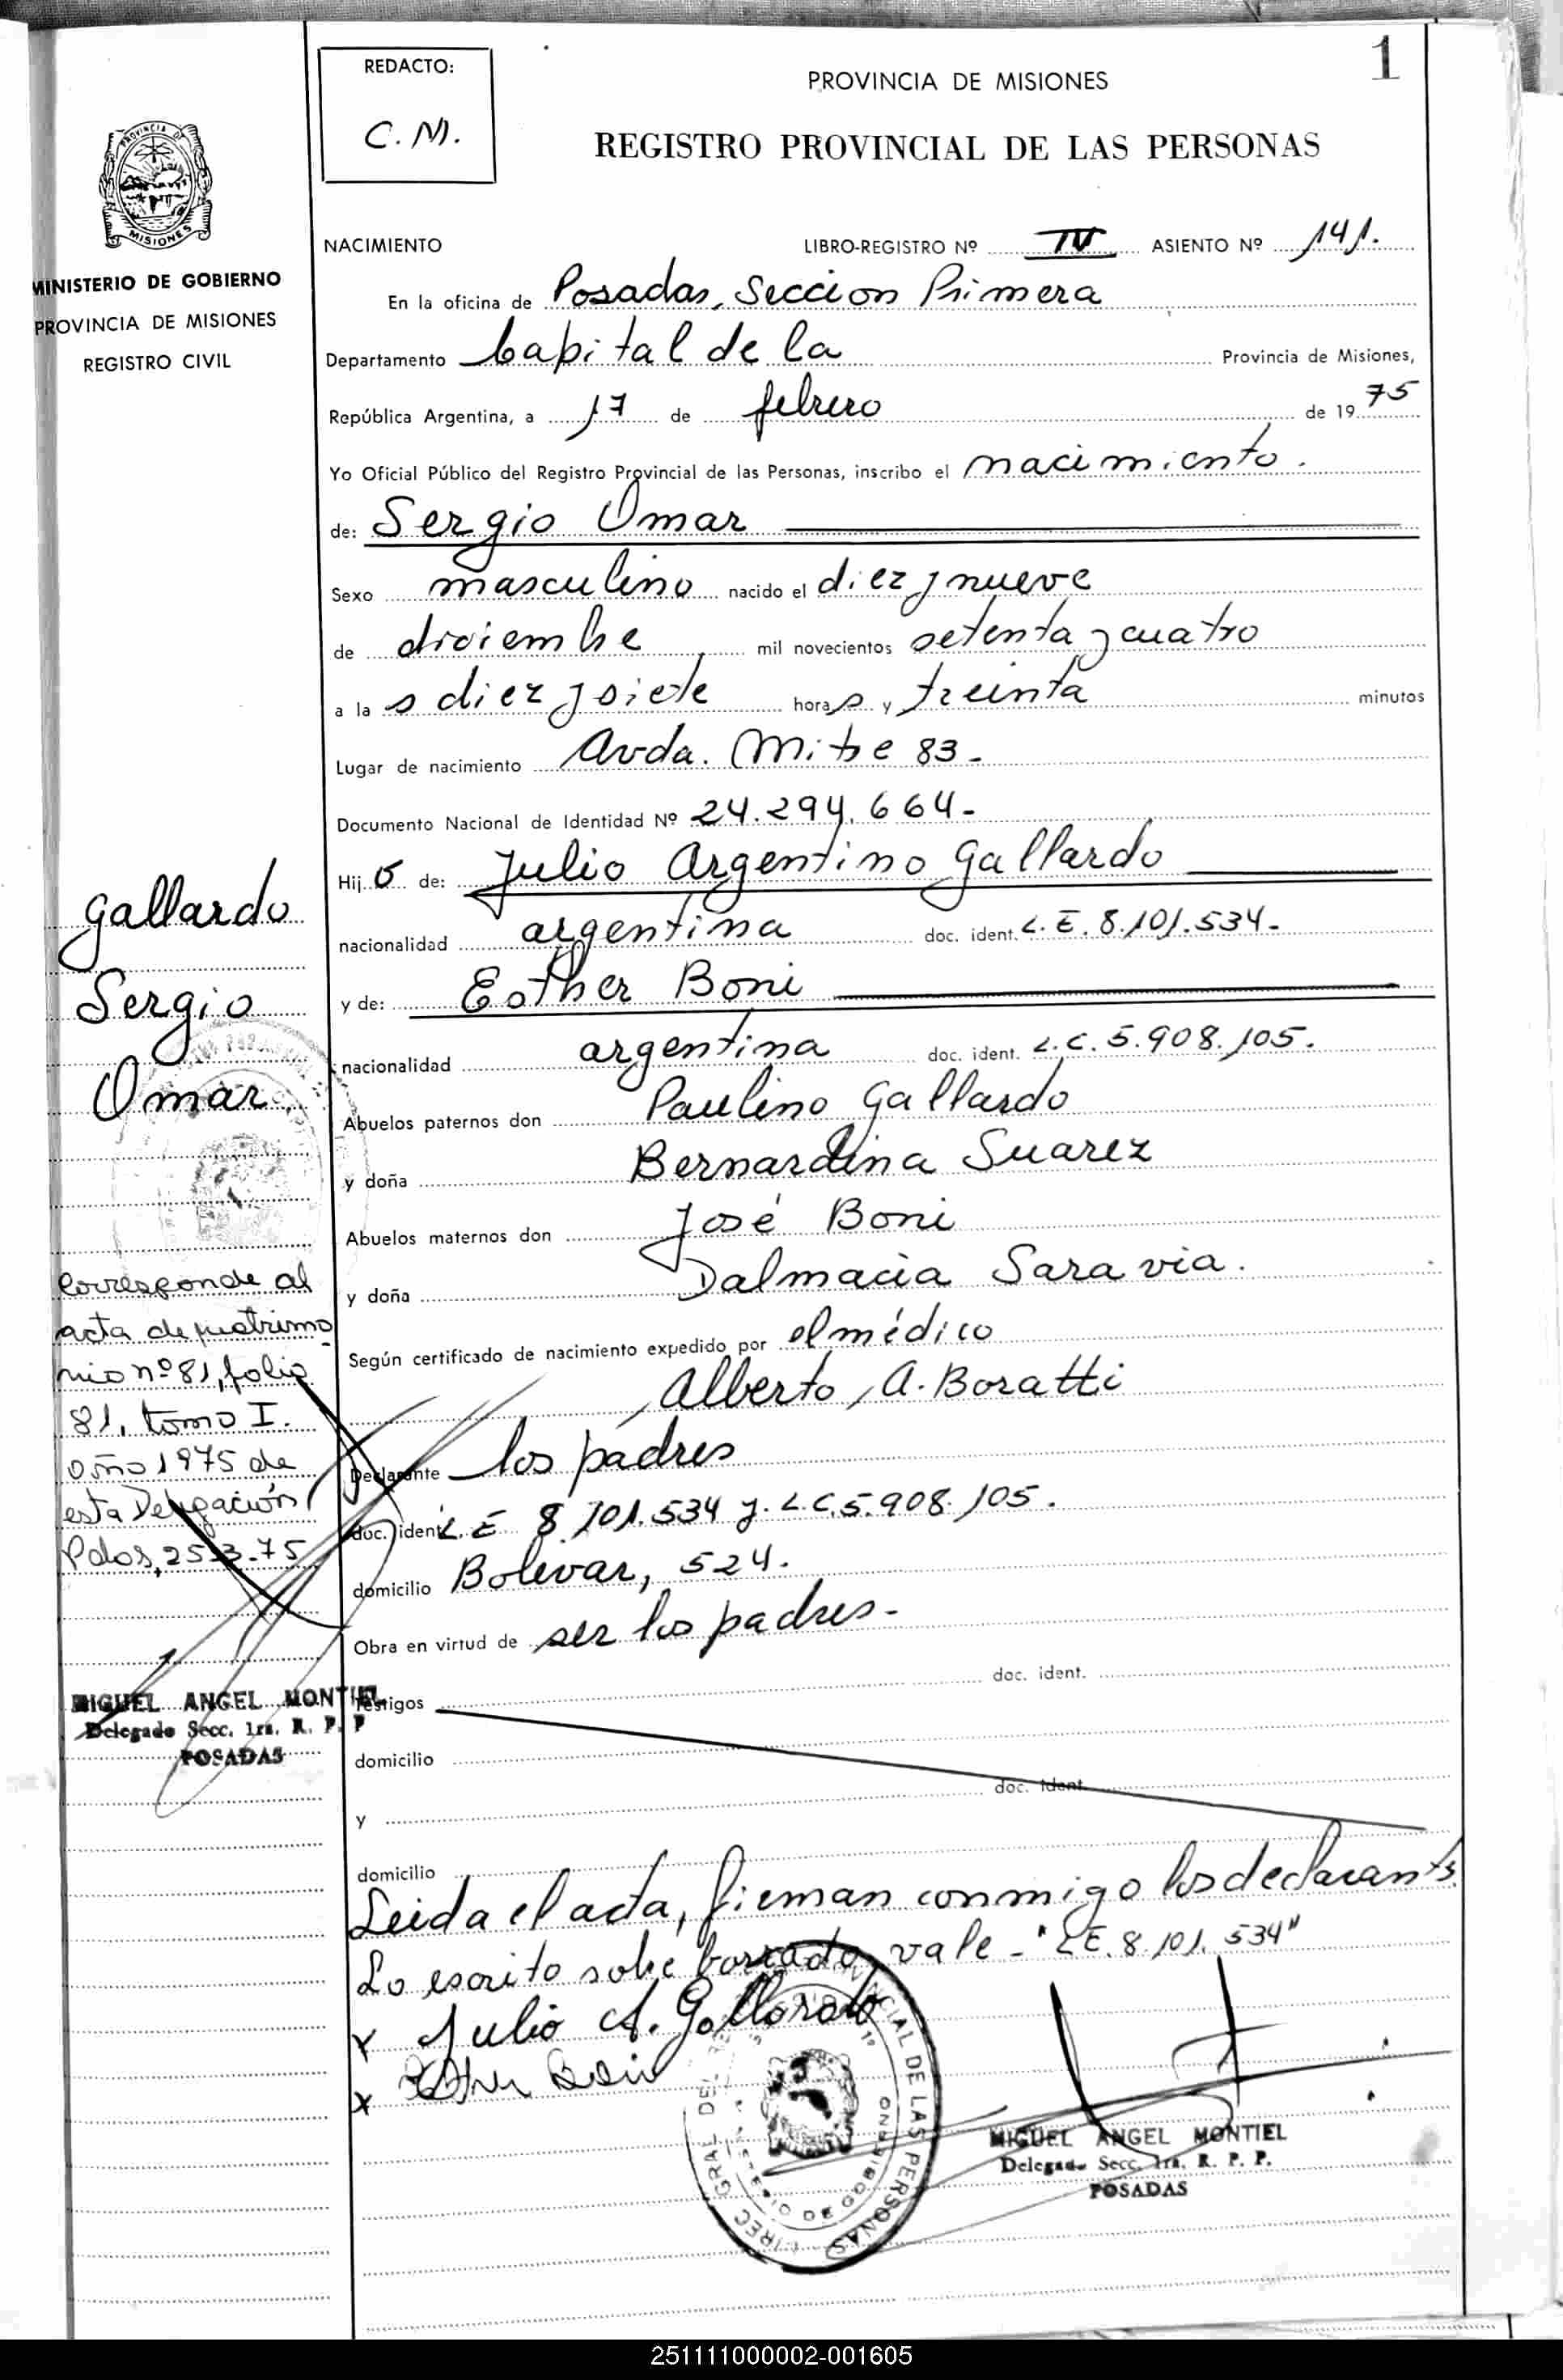 1
REDACTO:
C. M.
PROVINCIA DE MISIONES
REGISTRO PROVINCIAL DE LAS PERSONAS
PROVINCIA D
MISIONES
MINISTERIO DE GOBIERNO
PROVINCIA DE MISIONES
REGISTRO CIVIL
NACIMIENTO LIBRO-REGISTRO Nº IV ASIENTO Nº 141.
En la oficina de Posadas, Seccion Primera
Departamento Capital de la Provincia de Misiones,
República Argentina, a 17 de febrero de 1975
Yo Oficial Público del Registro Provincial de las Personas, inscribo el nacimiento.
de: Sergio Omar
Sexo masculino nacido el diez y nueve
de diciembre mil novecientos setenta y cuatro
a las diez y siete horas y treinta minutos
Lugar de nacimiento Avda. Mitre 83-
Documento Nacional de Identidad Nº 24.294.664-
Hijo de: Julio Argentino Gallardo
nacionalidad argentina doc. ident. L.E. 8.101.534-
y de: Esther Boni
nacionalidad argentina doc. ident. L.C. 5.908.105.
Abuelos paternos don Paulino Gallardo
y doña Bernardina Suarez
Abuelos maternos don José Boni
y doña Dalmacia Saravia.
Según certificado de nacimiento expedido por el médico
Alberto A. Boratti
Declarante los padres
doc. ident. L.E 8.101.534 y L.C. 5.908.105.
domicilio Bolivar, 524.
Obra en virtud de ser los padres-
doc. ident.
Testigos
domicilio
doc. ident.
y
domicilio
Leida el acta, firman conmigo los declarants.
Lo escrito sobre borrado vale - "L.E. 8.101.534"
x Julio A. Gallardo
x Esther Boni
Gallardo
Sergio
Omar
Corresponde al
acta de matrimo
nio nº 81, folio
81, tomo I.
año 1975 de
esta Delegación
Pdas, 25-3-75
MIGUEL ANGEL MONTIEL
Delegado Secc. 1ra. R. P. P
POSADAS
DIREC. GRAL. DEL REG. PROVINCIAL DE LAS PERSONAS
MINISTERIO DE GOBIERNO
MIGUEL ANGEL MONTIEL
Delegado Secc. 1ra. R. P. P.
POSADAS
251111000002-001605